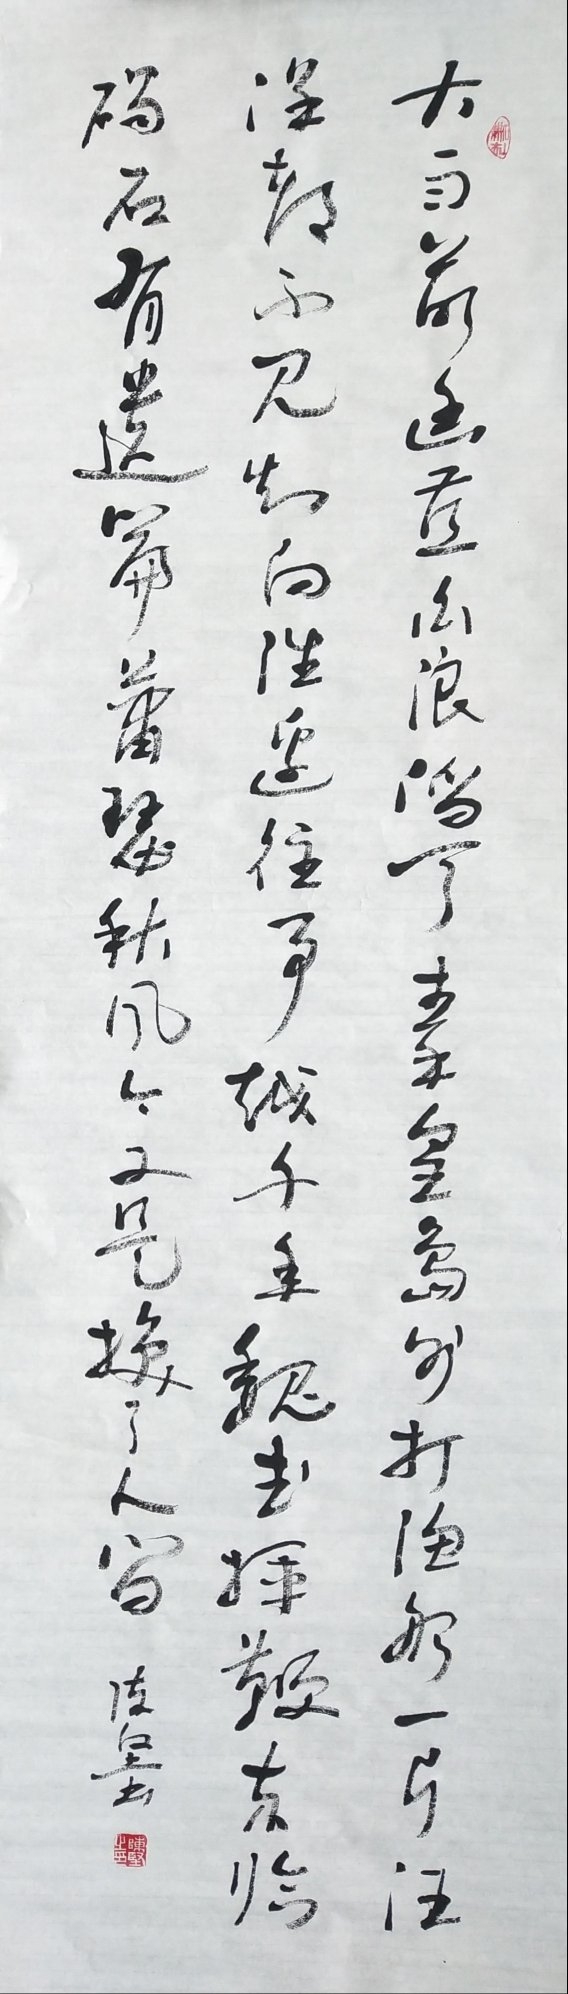 大雨落幽燕白浪滔天秦皇岛外打渔船一片汪
洋都不见知向谁边往事越千年魏武挥鞭东临
碣石有遗篇萧瑟秋风今又是换了人间
陈坚书
陳堅之印